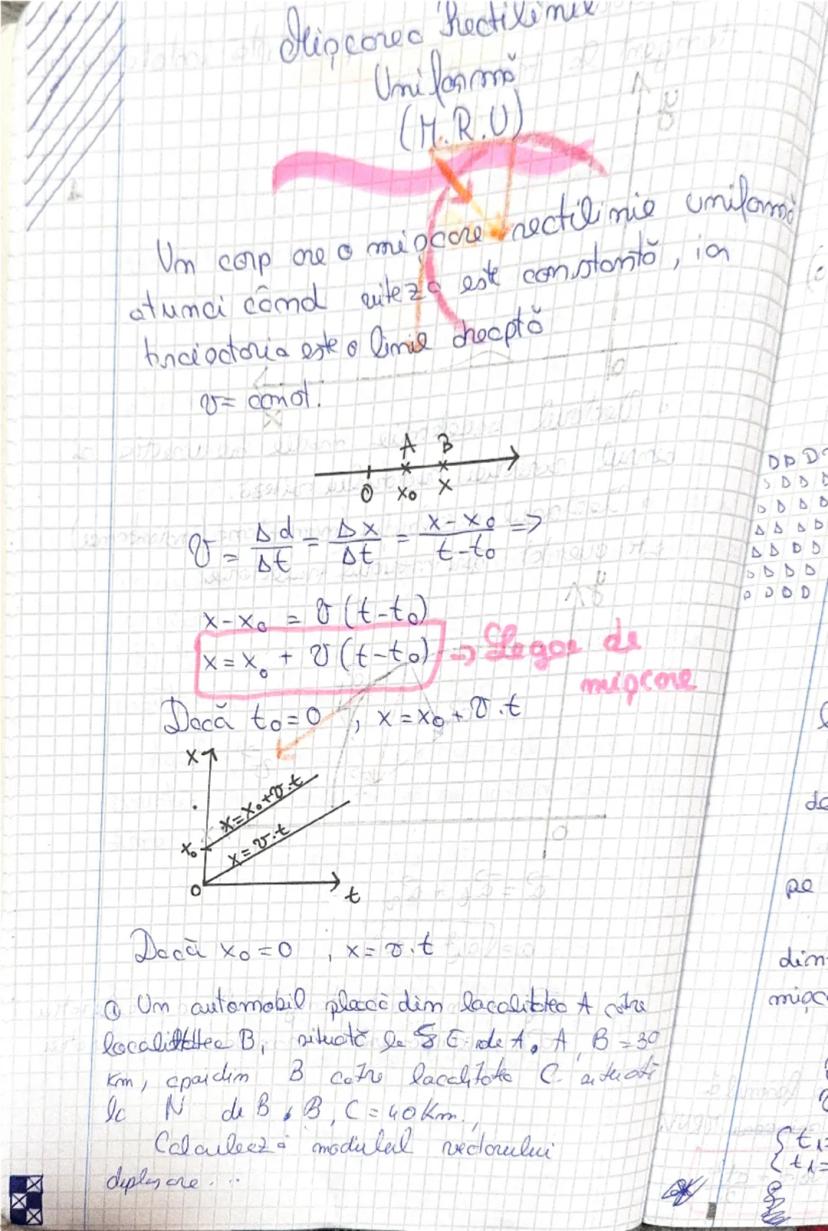 Mișcarea Rectilinie
Uniformă
(M.R.U)
Un corp are o mișcare rectilinie uniformă
atunci când viteza este constantă, iar
traiectoria este o linie dreaptă
v = const.
A B
0 x₀ x
v = Δd/Δt = Δx/Δt = (x-x₀)/(t-t₀) =>
x-x₀ = v(t-t₀)
x = x₀ + v(t-t₀) => Legea de
mișcare
Dacă t₀=0, x = x₀ + v·t
x
x=x₀+v·t
x₀ x=v·t
0 t
Dacă x₀=0, x = v·t
① Un automobil pleacă din localitatea A către
localitatea B, situată la E de A. A, B = 30
km, apoi din B către localitate C situată
la N de B, B, C = 40 km.
Calculează modulul vectorului
deplasare...